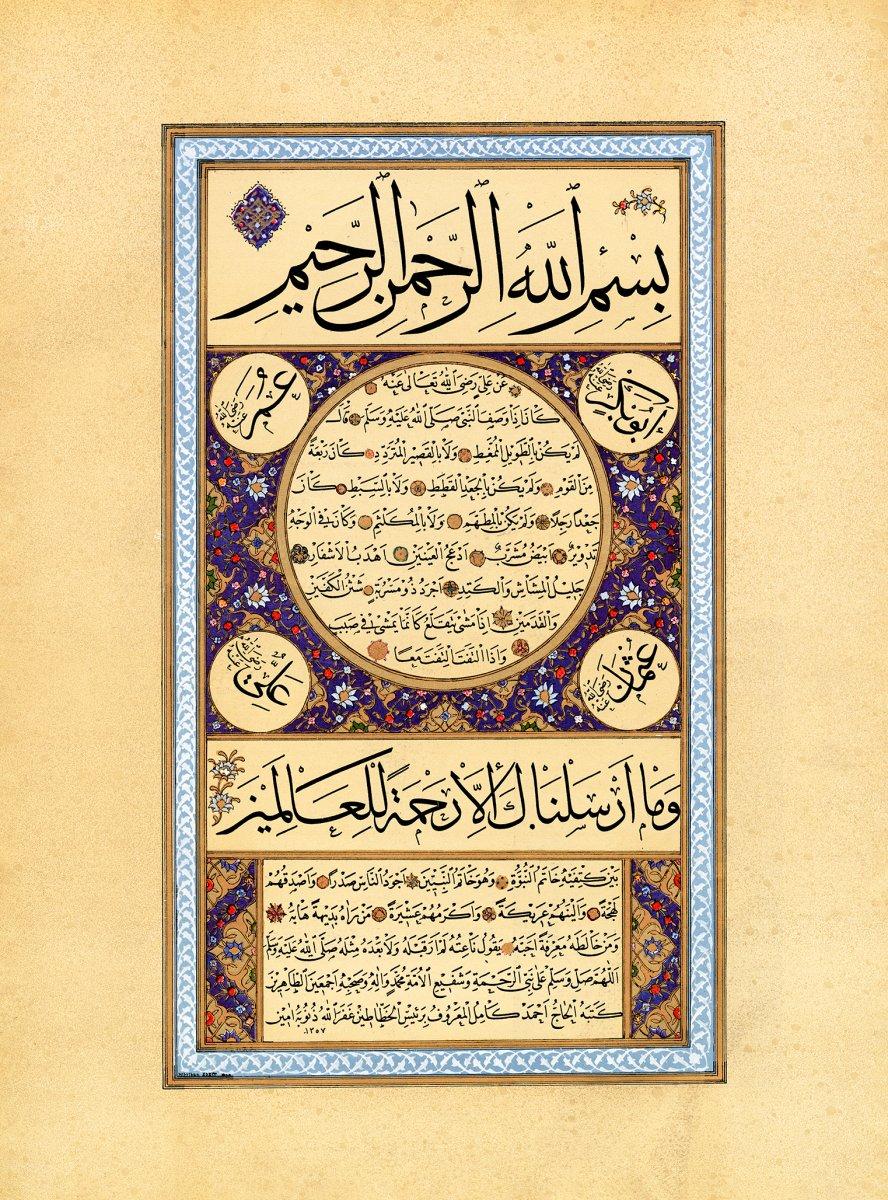 بِسْمِ اللّٰهِ الرَّحْمٰنِ الرَّحِيمِ
أَبُو بَكْرٍ رَضِيَ اللّٰهُ عَنْهُ
عُمَرُ رَضِيَ اللّٰهُ عَنْهُ
عَنْ عَلِيٍّ رَضِيَ اللّٰهُ تَعَالٰى عَنْهُ
كَانَ إِذَا وَصَفَ النَّبِيَّ صَلَّى اللّٰهُ عَلَيْهِ وَسَلَّمَ قَالَ
لَمْ يَكُنْ بِالطَّوِيلِ الْمُمَّغِطِ وَلَا بِالْقَصِيرِ الْمُتَرَدِّدِ كَانَ رَبْعَةً
مِنَ الْقَوْمِ وَلَمْ يَكُنْ بِالْجَعْدِ الْقَطَطِ وَلَا بِالسَّبِطِ كَانَ
جَعْدًا رَجِلًا وَلَمْ يَكُنْ بِالْمُطَهَّمِ وَلَا بِالْمُكَلْثَمِ وَكَانَ فِي الْوَجْهِ
تَدْوِيرٌ أَبْيَضُ مُشْرَبٌ أَدْعَجُ الْعَيْنَيْنِ أَهْدَبُ الْأَشْفَارِ
جَلِيلُ الْمُشَاشِ وَالْكَتَدِ أَجْرَدُ ذُو مَسْرُبَةٍ شَثْنُ الْكَفَّيْنِ
وَالْقَدَمَيْنِ إِذَا مَشٰى يَتَقَلَّعُ كَأَنَّمَا يَمْشِي فِي صَبَبٍ
وَإِذَا الْتَفَتَ الْتَفَتَ مَعًا
عُثْمَانُ رَضِيَ اللّٰهُ عَنْهُ
عَلِيٌّ رَضِيَ اللّٰهُ عَنْهُ
وَمَا أَرْسَلْنَاكَ إِلَّا رَحْمَةً لِلْعَالَمِينَ
بَيْنَ كَتِفَيْهِ خَاتَمُ النُّبُوَّةِ وَهُوَ خَاتَمُ النَّبِيِّينَ أَجْوَدُ النَّاسِ صَدْرًا وَأَصْدَقُهُمْ
لَهْجَةً وَأَلْيَنُهُمْ عَرِيكَةً وَأَكْرَمُهُمْ عَشِيرَةً مَنْ رَآهُ بَدِيهَةً هَابَهُ
وَمَنْ خَالَطَهُ مَعْرِفَةً أَحَبَّهُ يَقُولُ نَاعِتُهُ لَمْ أَرَ قَبْلَهُ وَلَا بَعْدَهُ مِثْلَهُ صَلَّى اللّٰهُ عَلَيْهِ وَسَلَّمَ
اللّٰهُمَّ صَلِّ وَسَلِّمْ عَلٰى نَبِيِّ الرَّحْمَةِ وَشَفِيعِ الْأُمَّةِ مُحَمَّدٍ وَآلِهِ وَصَحْبِهِ أَجْمَعِينَ الطَّاهِرِينَ
كَتَبَهُ الْحَاجُّ أَحْمَدُ كَامِلُ الْمَعْرُوفُ بِرَئِيسِ الْخَطَّاطِينَ غَفَرَ اللّٰهُ ذُنُوبَهُ آمِينَ
١٣٥٧